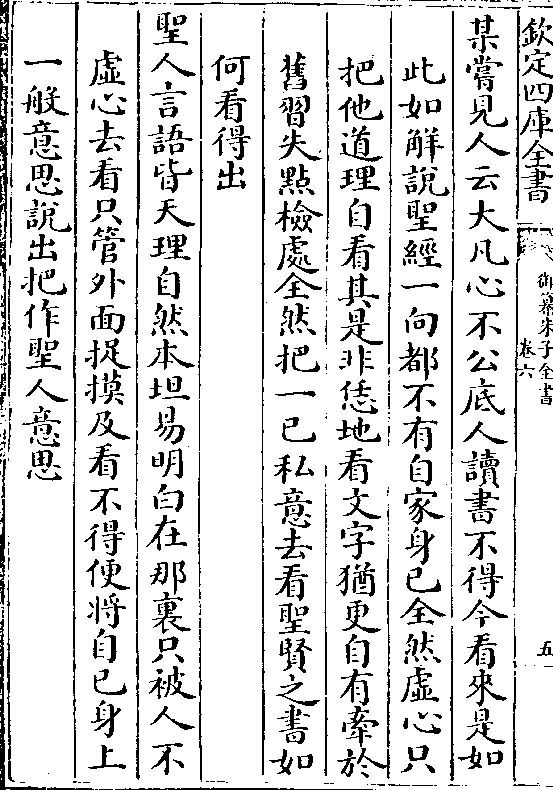 欽定四庫全書
御纂朱子全書
卷六
五
某嘗見人云大凡心不公底人讀書不得今看來是如
此如解說聖經一句都不有自家身己全然虛心只
把他道理自看其是非恁地看文字猶更自有牽於
舊習失點檢處全然把一己私意去看聖賢之書如
何看得出
聖人言語皆天理自然本坦易明白在那裏只被人不
虛心去看只管外面捉摸及看不得便將自己身上
一般意思說出把作聖人意思